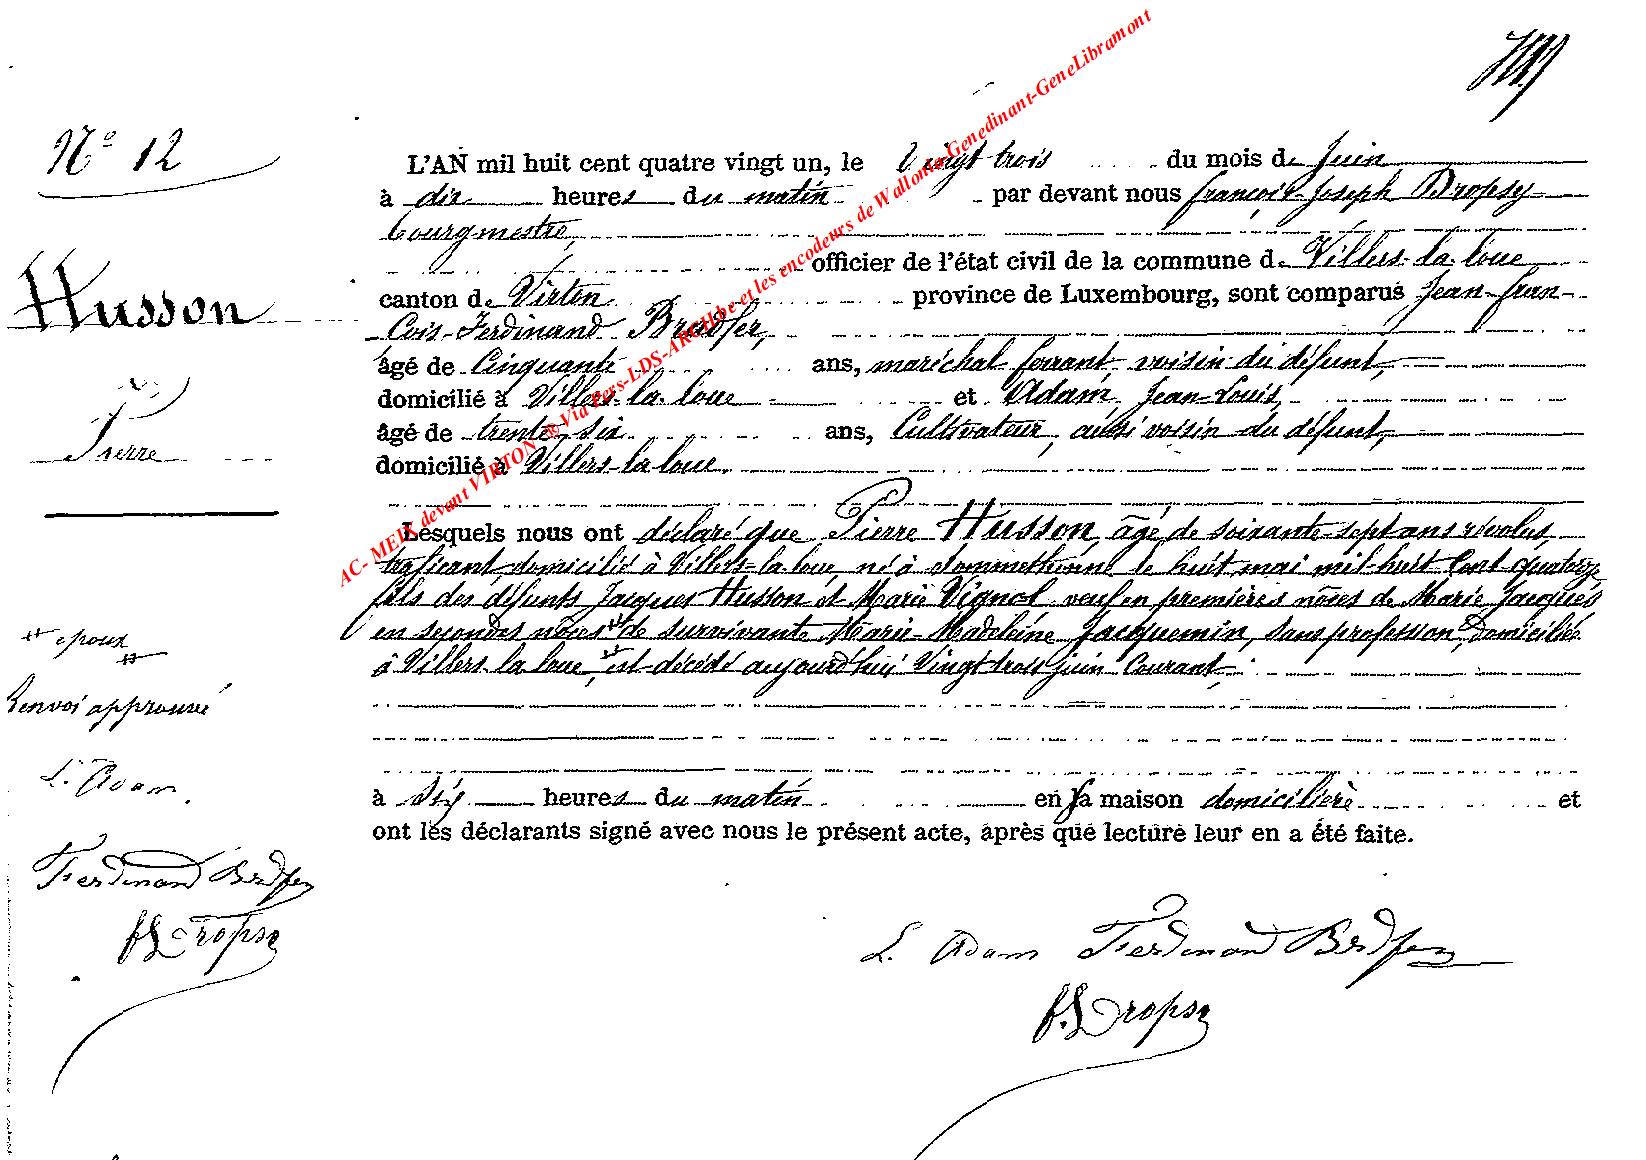 N° 12
Husson
Pierre
époux
Renvoi approuvé
L. Adam.
Ferdinand Bradfer
L'AN mil huit cent quatre vingt un, le vingt trois du mois de Juin
à dix heures du matin par devant nous françois-Joseph Dropsy
bourgmestre,
officier de l'état civil de la commune de Villers-la-loue
canton de Virton province de Luxembourg, sont comparus Jean-fran-
çois-Ferdinand Bradfer,
âgé de Cinquante ans, maréchal ferrant voisin du défunt,
domicilié à Villers-la-loue et Adam Jean-Louis,
âgé de trente six ans, Cultivateur, aussi voisin du défunt,
domicilié à Villers-la-loue.
Lesquels nous ont déclaré que Pierre Husson, âgé de soixante-sept ans révolus,
domicilié à Villers-la-loue, né à le huit mai mil huit Cent quatorze
fils des défunts Jacques Husson et Marie Vignol veuf en premières nôces de Marie Jacques
en secondes nôces de survivante Marie-Madeleine Jacquemin, sans profession, domiciliée
à Villers-la-loue, est décédé aujourd'hui Vingt trois juin Courant,
à six heures du matin en sa maison domicilière et
ont les déclarants signé avec nous le présent acte, après que lecture leur en a été faite.
L. Adam Ferdinand Bradfer
f.J. Dropsy
AC- MEIX devant VIRTON ® Via Pers-LDS-ARCH.be et les encodeurs de Wallonia-Genedinant-GeneLibramont